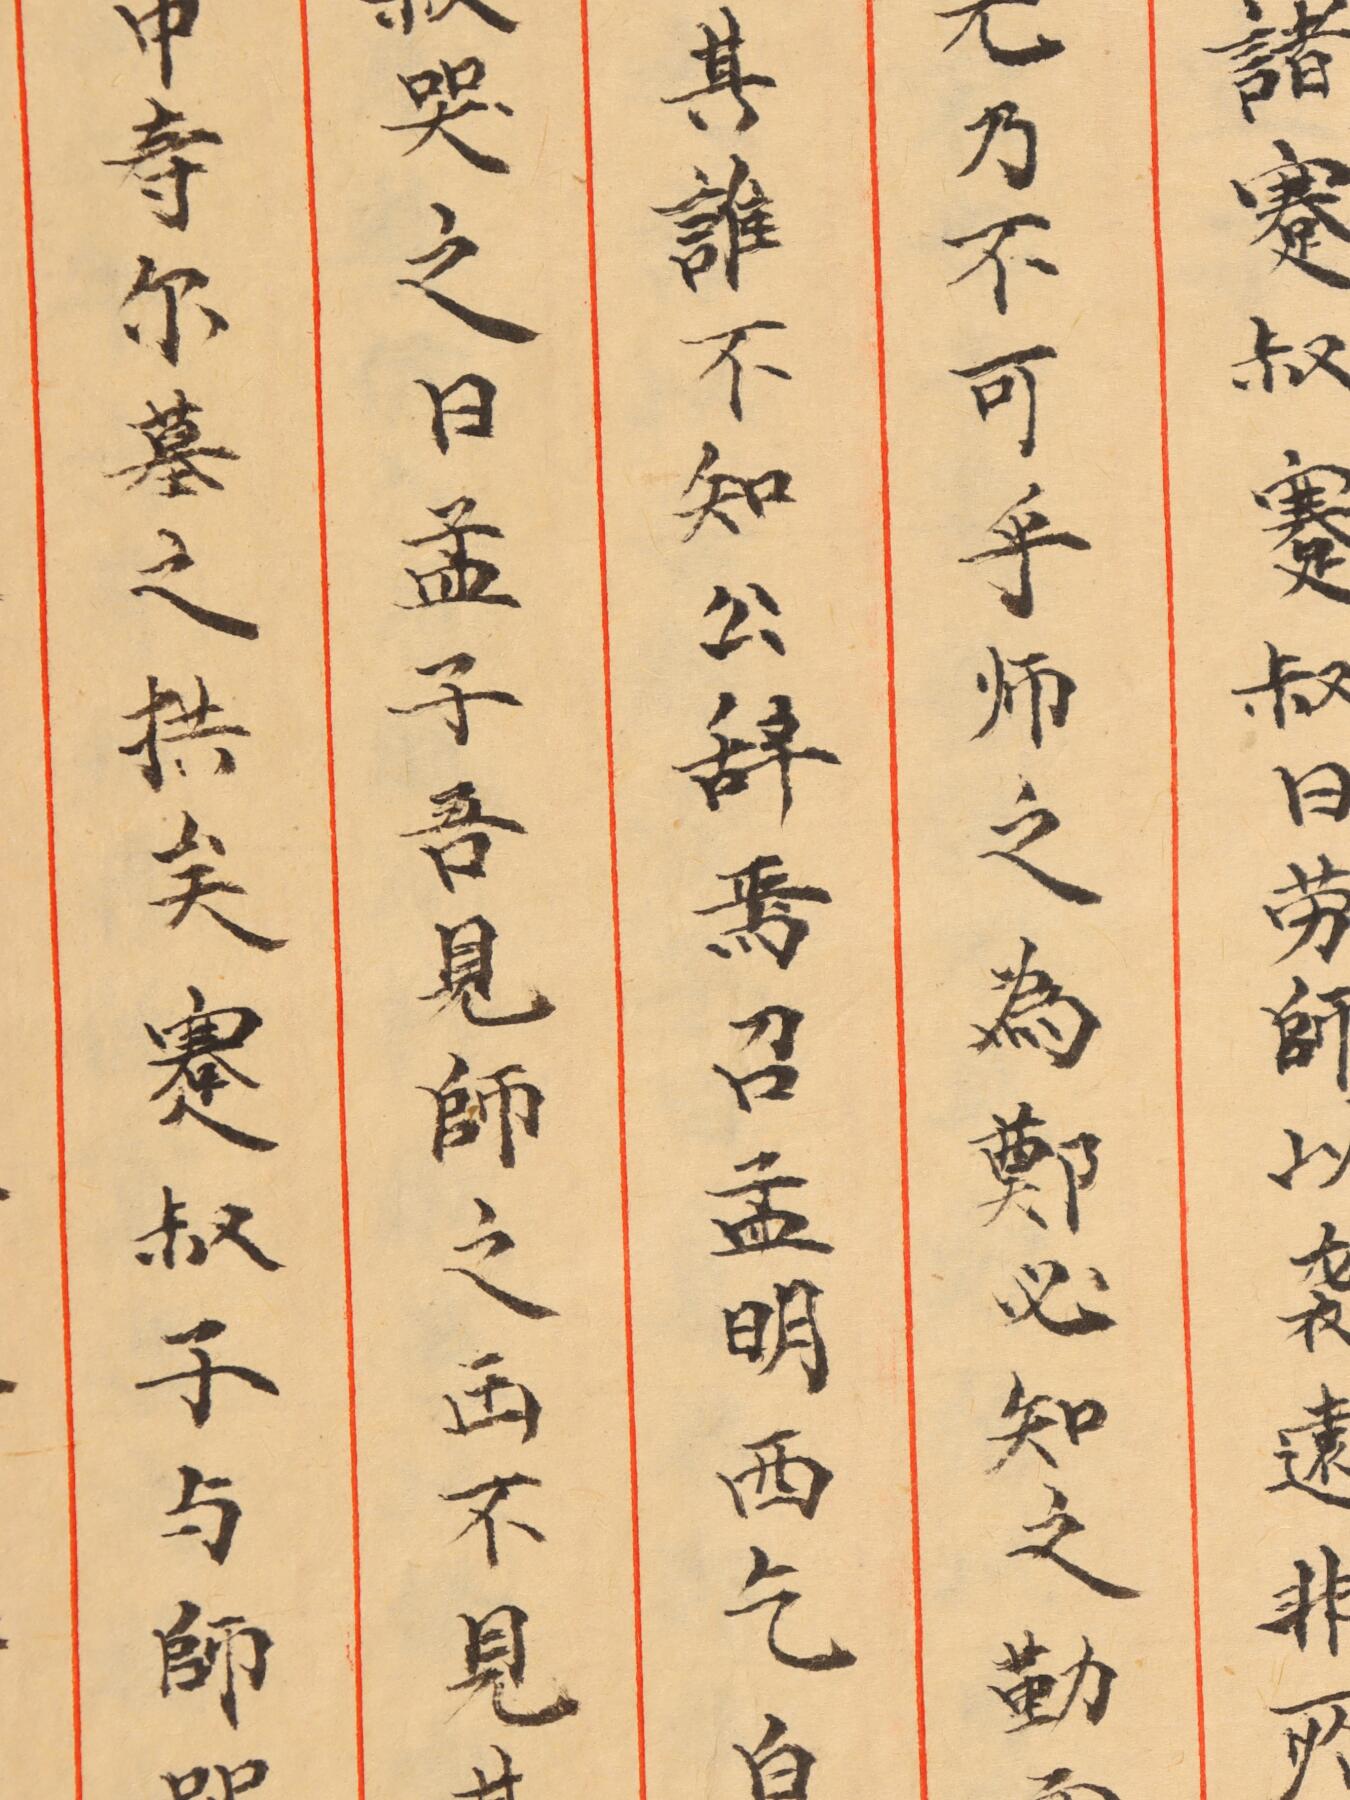 諸蹇叔蹇叔曰劳師以袭遠非所
无乃不可乎师之為鄭必知之勤而
其誰不知公辞焉召孟明西乞白
叔哭之曰孟子吾見師之出不見其
中寿尔墓之拱矣蹇叔子与師哭